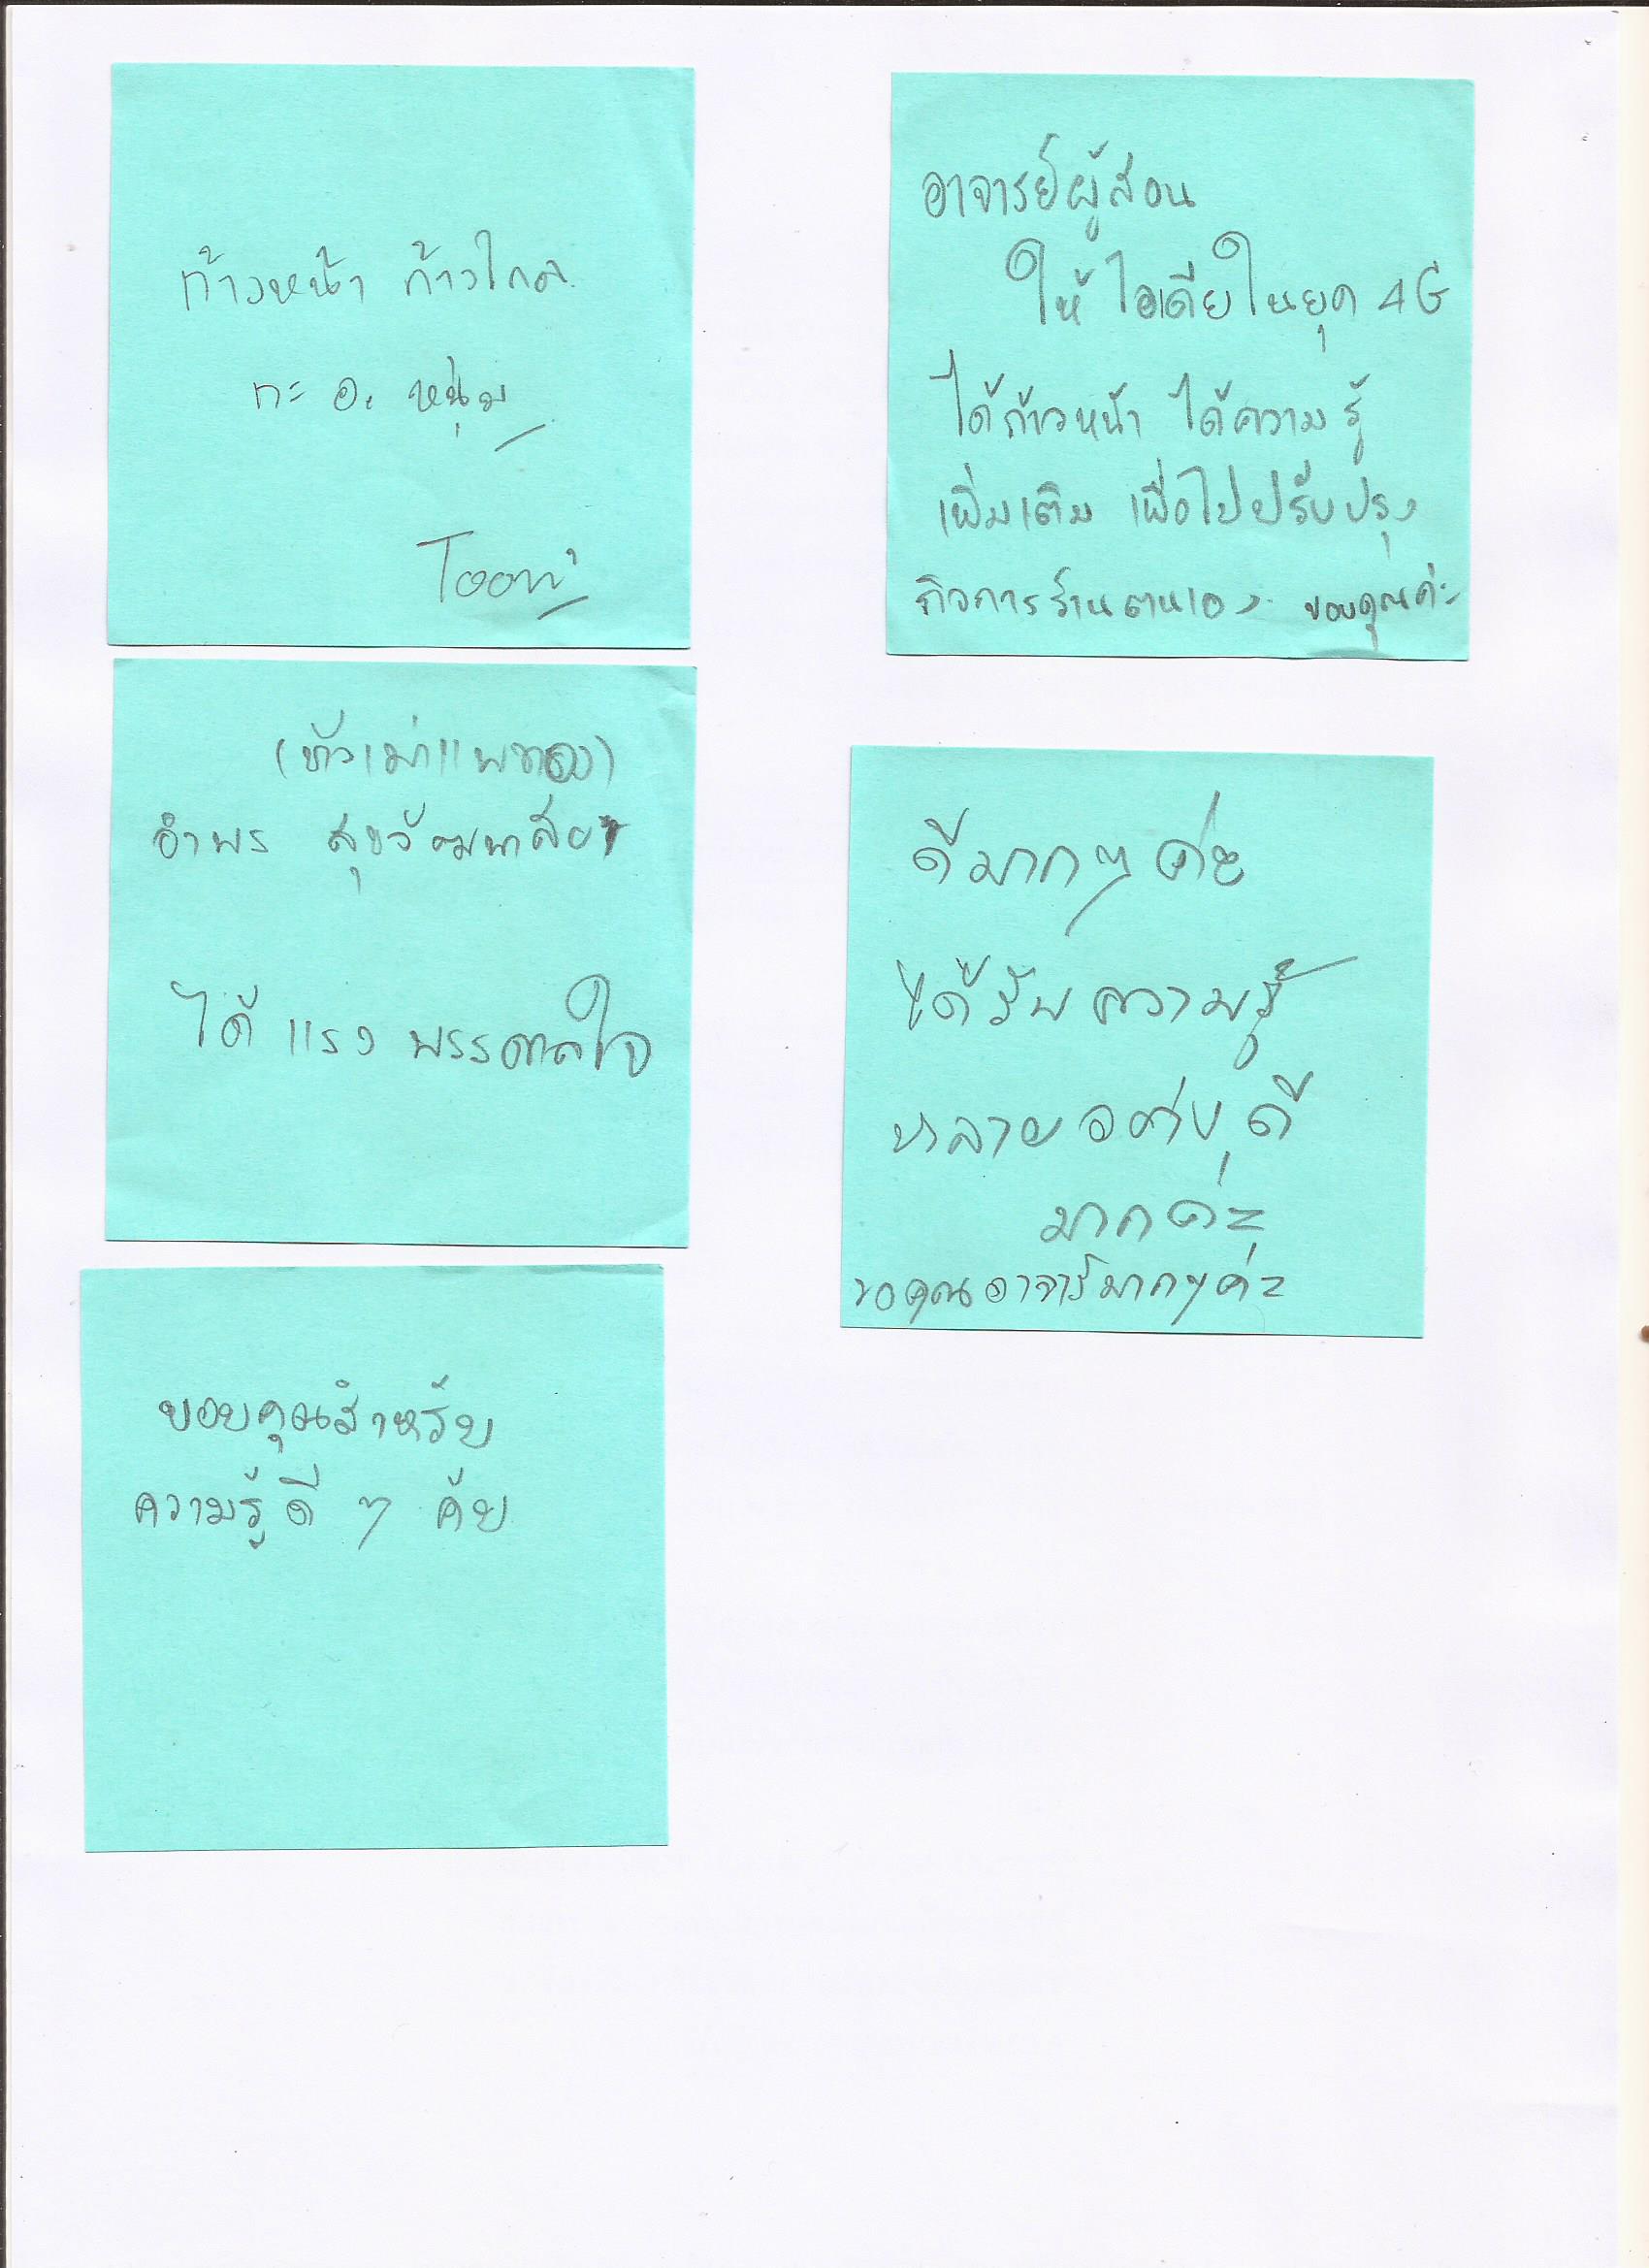 ก้าวหน้า ก้าวไกล
กะ อ. หนุ่ม
Toom
อาจารย์ผู้สอน
ให้ ไอเดียในยุค 4G
ได้ก้าวหน้า ได้ความรู้
เพิ่มเติม เพื่อไปปรับปรุง
กิจการร้านตนเอง ขอบคุณค่ะ
อำพร
ได้ แรง พรรดาลใจ
ดีมากๆ ค่ะ
ได้รับ ความรู้
หลาย อย่าง ดี
มากค่ะ
ขอคุณอาจารย์มากๆค่ะ
ขอบคุณสำหรับ
ความรู้ดี ๆ ค้บ